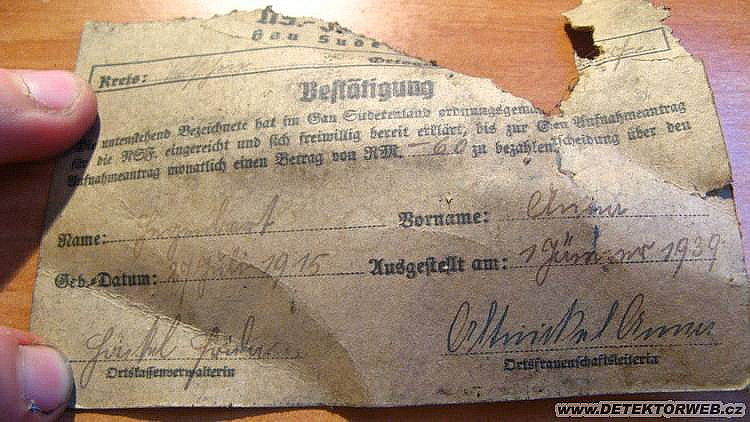 NS.
Gau Sude
Kreis:
Bestätigung
Die untenstehend Bezeichnete hat im Gau Sudetenland ordnungsgemä
für die NSF. eingereicht und sich freiwillig bereit erklärt, bis zur Aufnahmeantrag
Aufnahmeantrag monatlich einen Betrag von RM. -.60 zu bezahlen. scheidung über den
Name: Vorname: Anna
Geb.-Datum: 27 Juli 1915 Ausgestellt am: 1 Jänner 1939
Altnickel Anna
Ortskassenverwalterin Ortsfrauenschaftsleiterin
www.DETEKTORWEB.cz